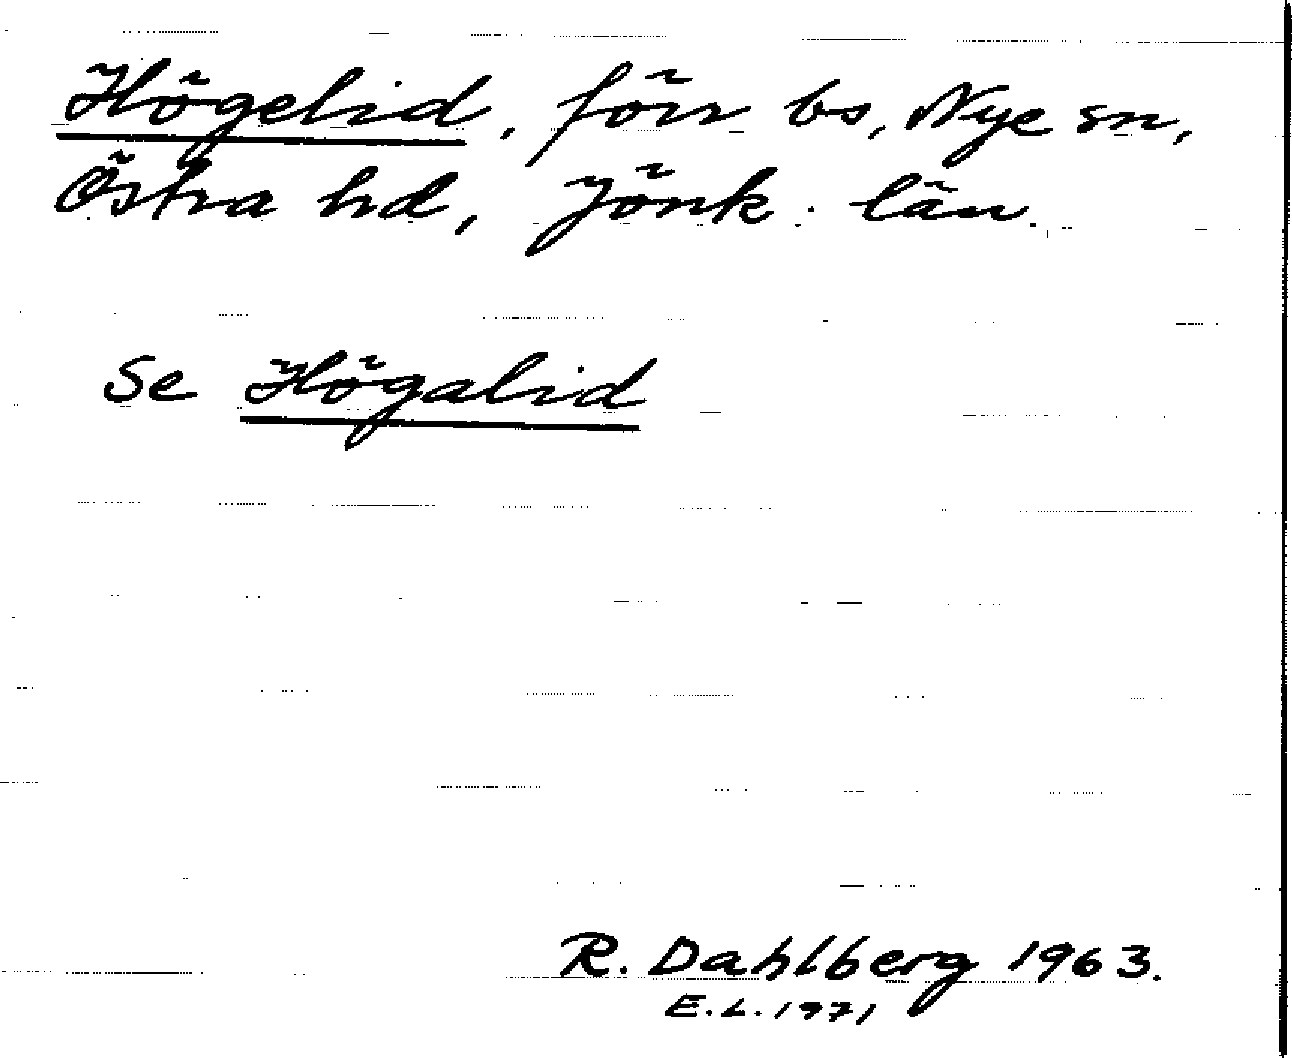 Högelid, förr bs, Nye sn,
Östra hd, Jönk. län.
Se Högalid
R. Dahlberg 1963.
E.L. 1971